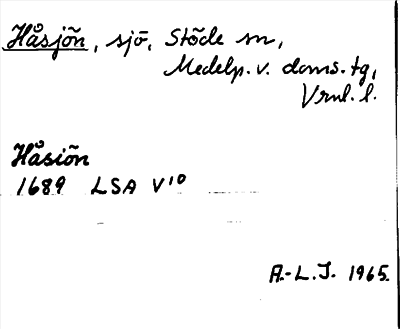 Håsjön, sjö, Stöde sn,
Medelp. v. doms. tg,
Vrnl. l.
Håsiön
1689 LSA V¹⁰
A.-L.J. 1965.